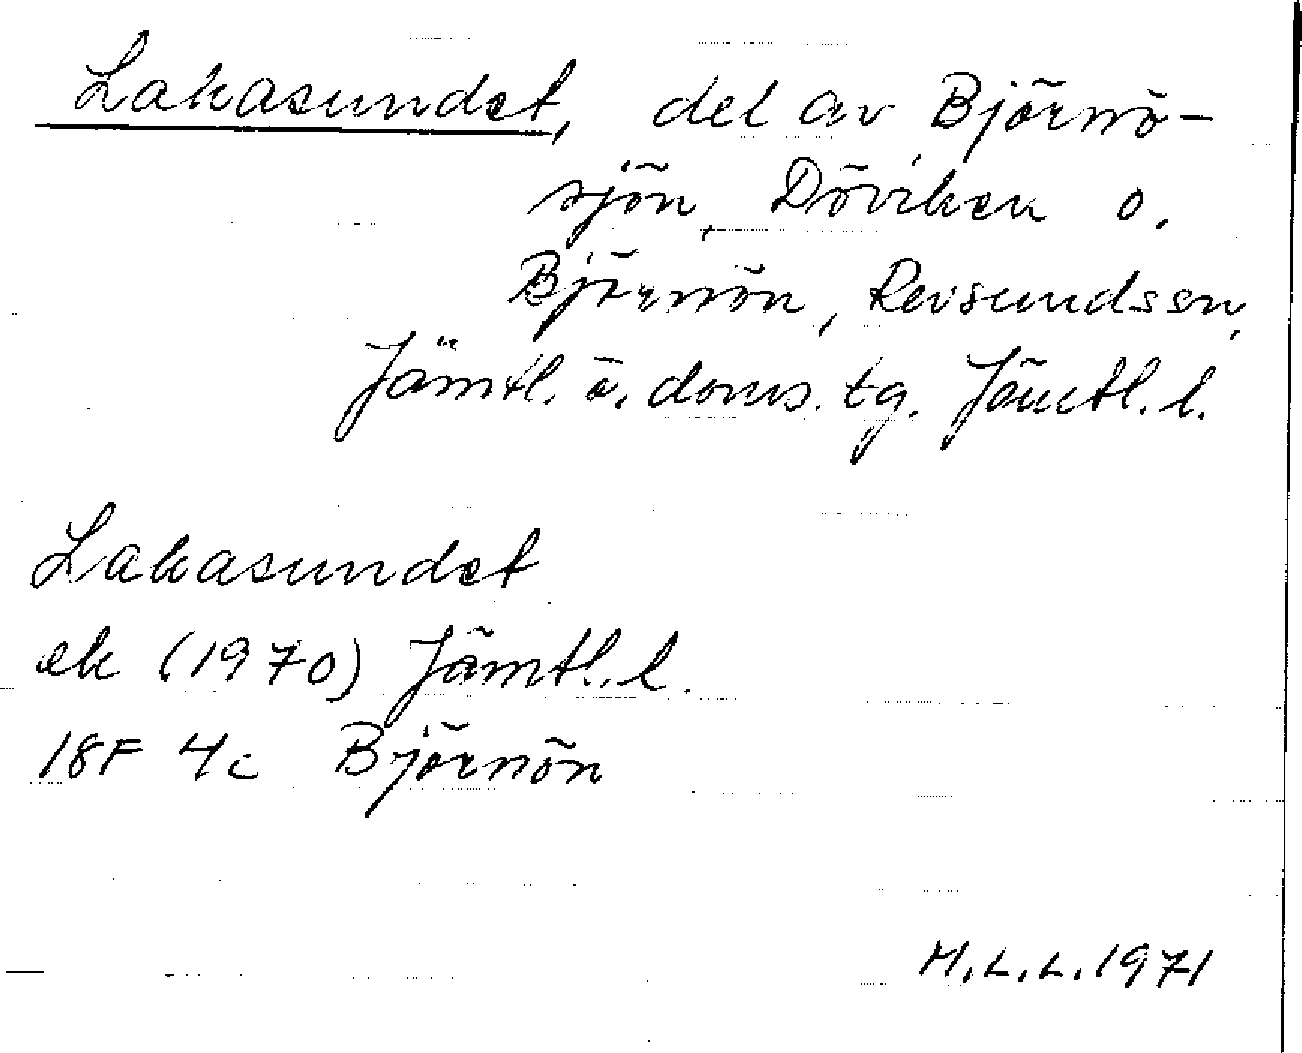 Lakasundet, del av Björnö-
sjön, Döviken o.
Björnön, Revsunds sn,
Jämtl. ö. doms. tg. Jämtl. l.
Lakasundet
ek (1970) Jämtl. l.
18F 4c Björnön
M.L.L. 1971